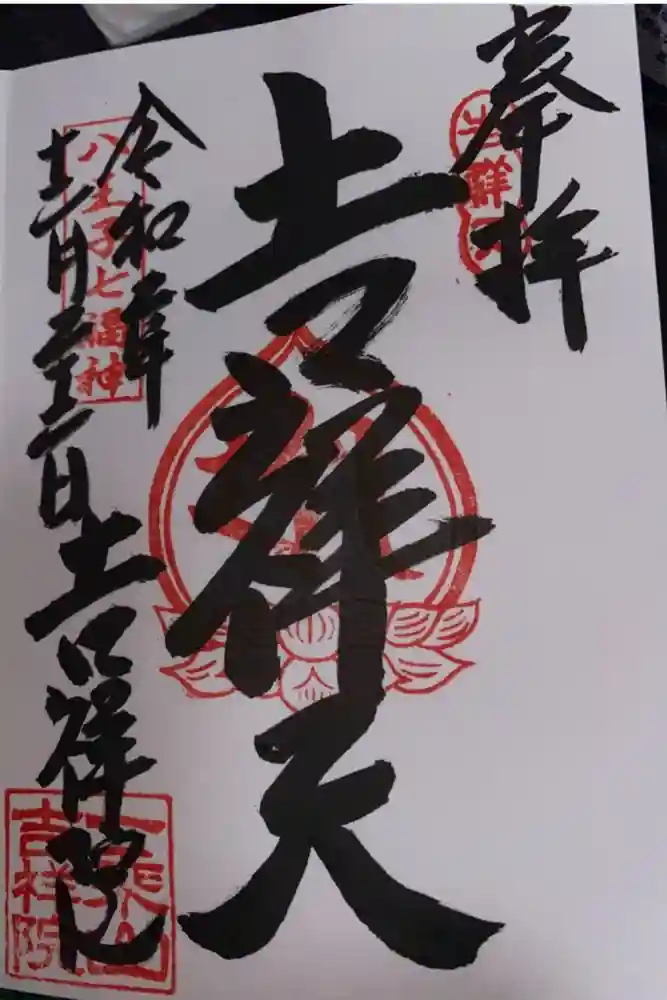 奉拝
吉祥天
令和元年
十二月二十二日
吉祥院
八王子七福神
吉祥天
吉祥院